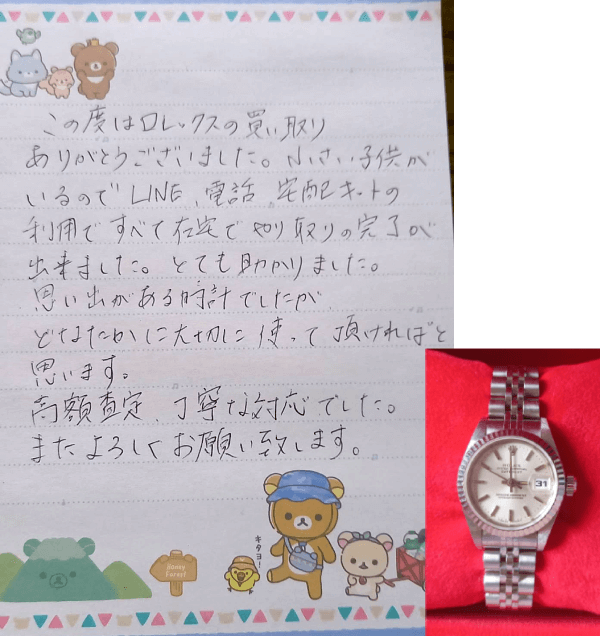 この度はロレックスの買い取り
ありがとうございました。小さい子供が
いるのでLINE、電話、宅配キットの
利用ですべて在宅でやり取りの完了が
出来ました。とても助かりました。
思い出がある時計でしたが、
どなたかに大切に使って頂ければと
思います。
高額査定、丁寧な対応でした。
またよろしくお願い致します。
キタヨ!
Honey
Forest
ROLEX
31